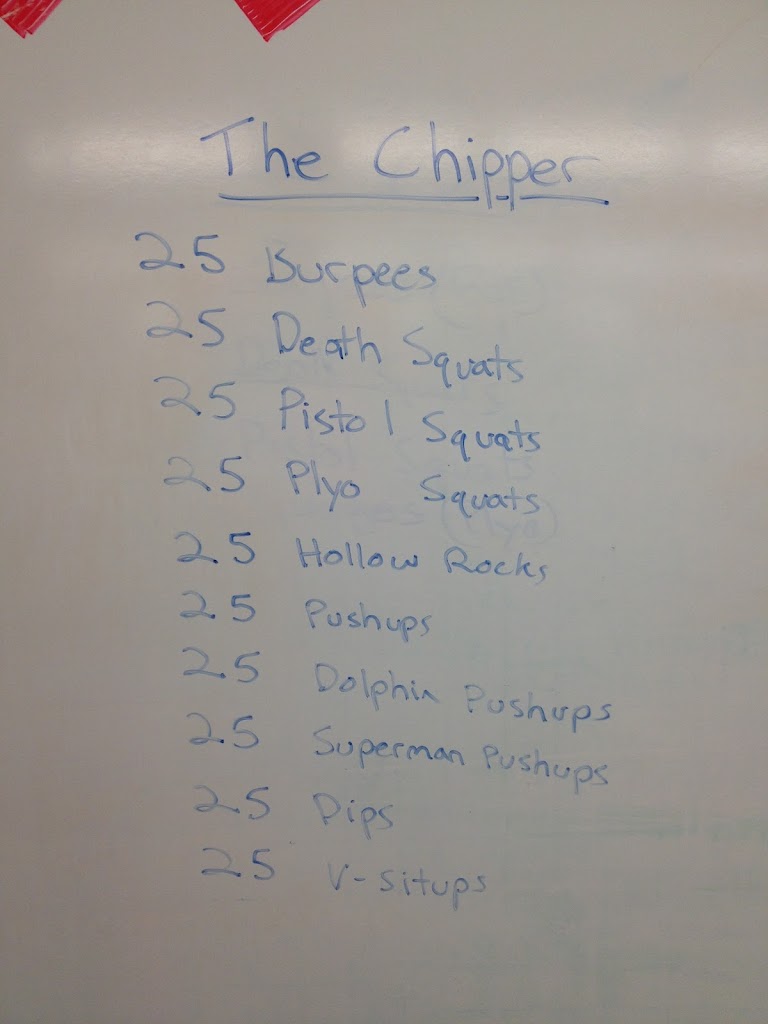 The Chipper
25 Burpees
25 Death Squats
25 Pistol Squats
25 Plyo Squats
25 Hollow Rocks
25 Pushups
25 Dolphin Pushups
25 Superman Pushups
25 Dips
25 V-situps